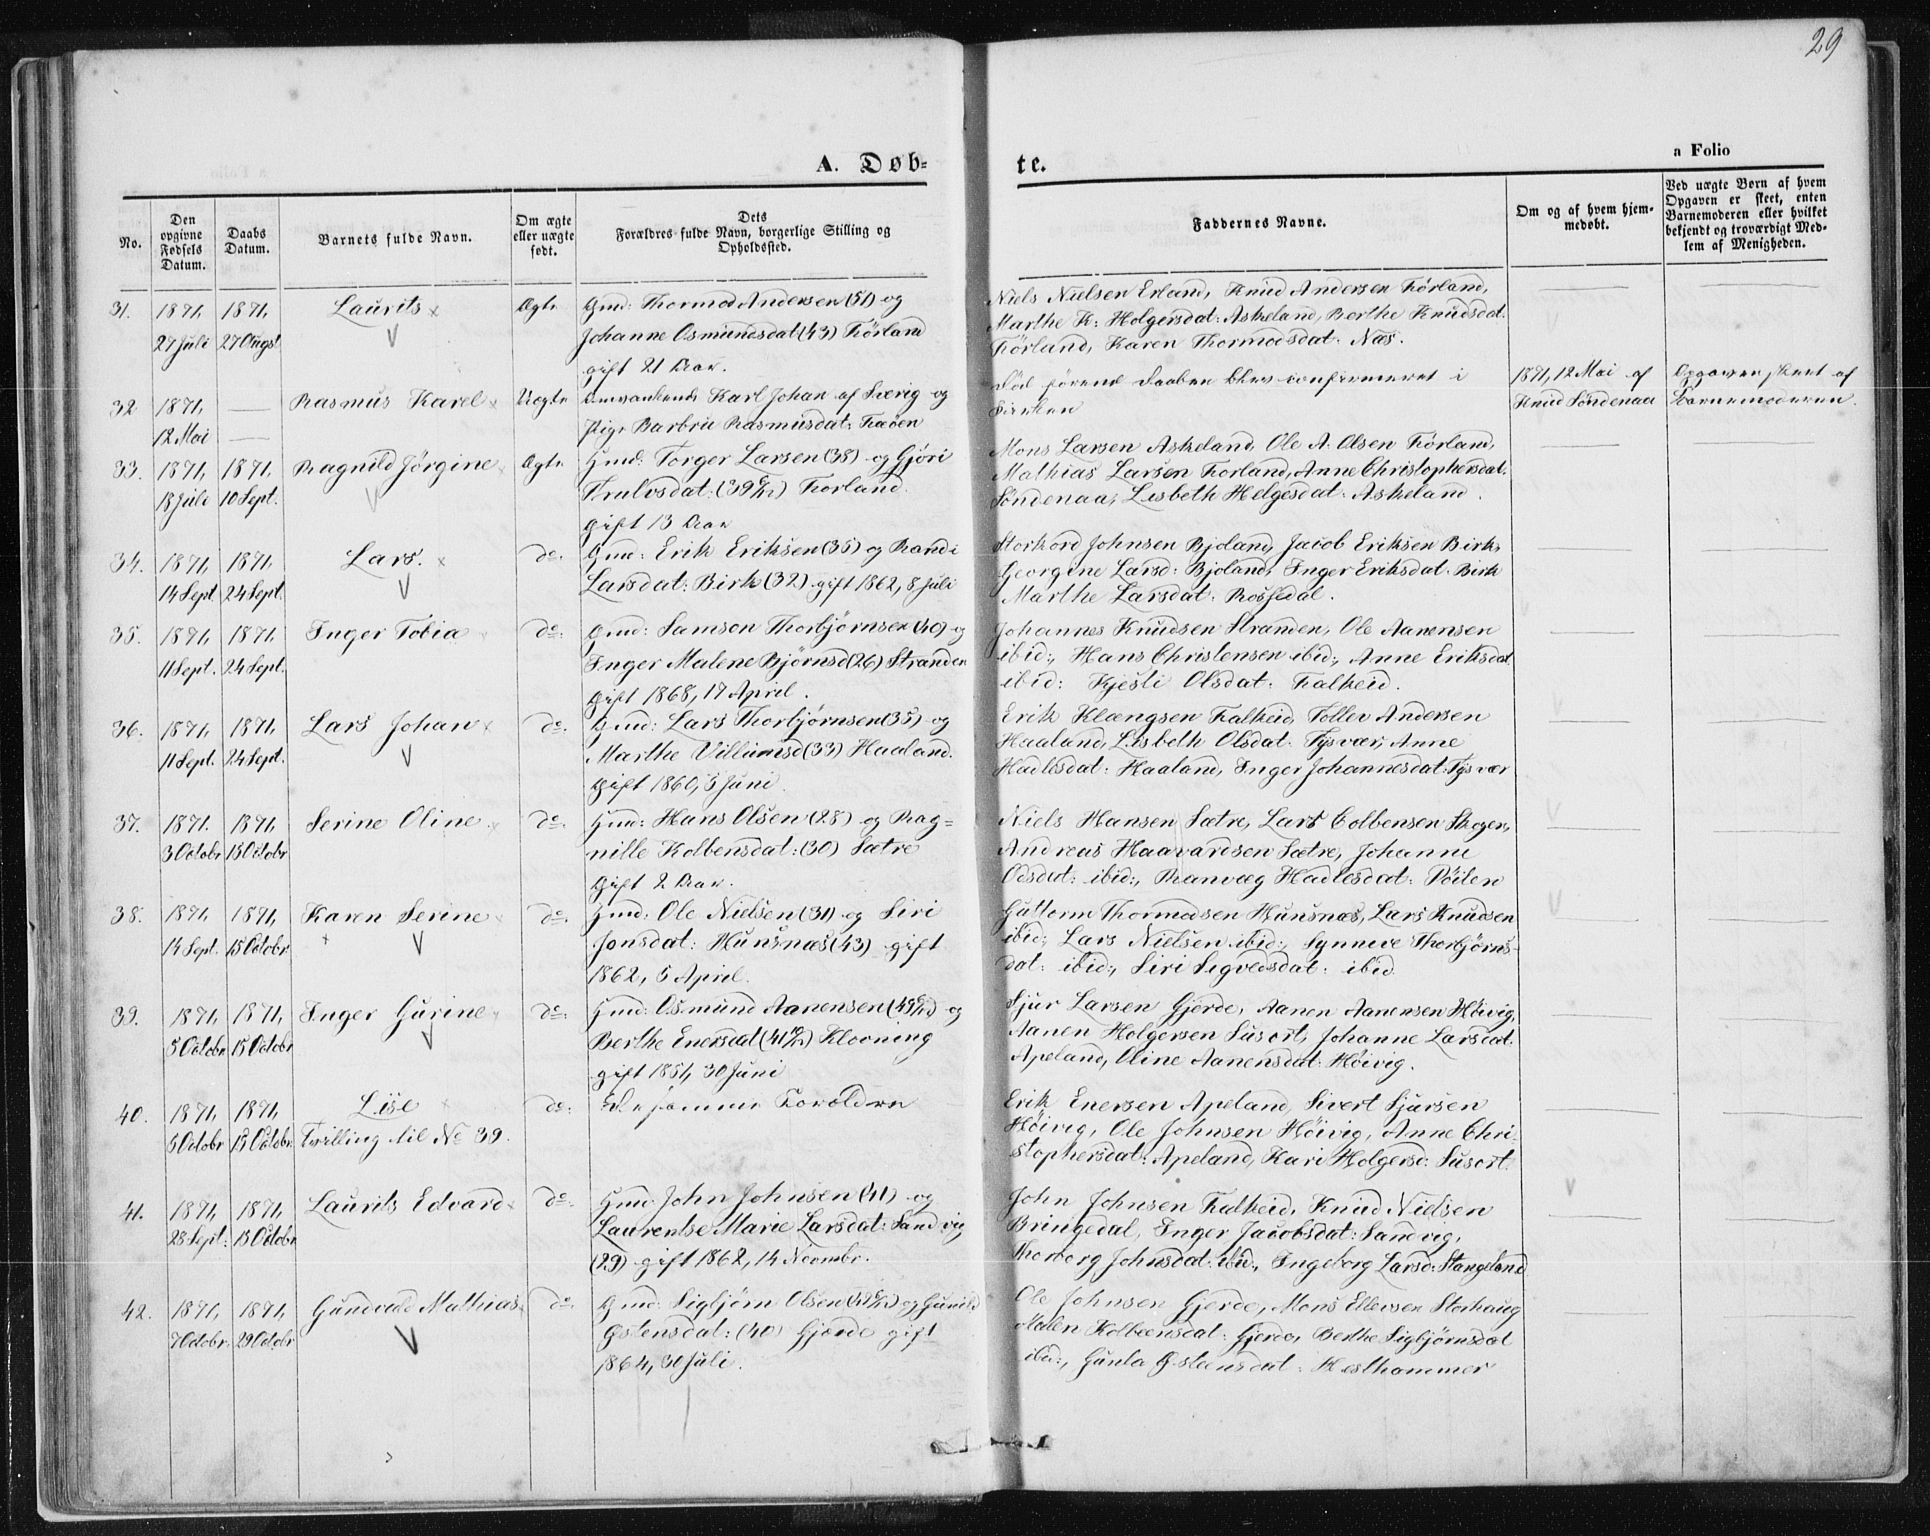 29
A. Døb-
te.
a Folio
No.
Den opgivne Fødsels Datum.
Daabs Datum.
Barnets fulde Navn.
Om ægte eller uægte født.
Dets Forældres fulde Navn, borgerlige Stilling og Opholdssted.
Faddernes Navne.
Om og af hvem hjemmedøbt.
Ved uægte Børn af hvem Opgaven er skeet, enten Barnemoderen eller hvilket bekjendt og troværdigt Medlem af Menigheden.
31. 1871, 27 Juli 1871, 27 Augst Laurits Ægte
Gmd: Thormod Andersen (51) og
Johanne Osmundsdat (43) Førland
gift 21 Aar.
Niels Nielsen Erland, Knud Andersen Førland,
Marthe K: Holgersdat: Askeland, Berthe Knudsdat:
Førland, Karen Thormodsdat: Næs.
32 1871, 12 Mai Rasmus Karel Uægte
Karl Johan af og
Pige Barbru Rasmusdat:
Død førend Daaben blev confirmeret i
Kirken
1871, 12 Mai af
Knud Søndenaa
Opgaven skeet af
Barnemoderen.
33. 1871, 18 Juli 1871, 10 Sept. Ragnild Jørgine Ægte
Gmd: Torger Larsen (38) og Gjøri
Trulsdat: (39) Førland.
gift 13 Aar
Mons Larsen Askeland, Ole A. Olsen Førland,
Mathias Larsen Førland, Anne Christophersdat:
Søndenaa, Lisbeth Helgesdat: Askeland.
34. 1871, 14 Sept 1871, 24 Sept. Lars. do:
Gmd: Erik Eriksen (35) og Randi
Larsdat: Birk (32) gift 1862, 8 Juli
Storkord Johnsen Bjoland, Jacob Eriksen Birk,
Georgine Larsd: Bjoland, Inger Eriksdat: Birk
Marthe Larsdat: Rossedal.
35. 1871, 11 Sept. 1871, 24 Sept. Inger Tobia do:
Gmd: Samson Thorbjørnsen (40) og
Inger Malene Bjørnsd (26) Stranden
gift 1868, 17 April.
Johannes Knudsen Stranden, Ole Aanensen
ibid:, Hans Christensen ibid:, Anne Eriksdat
ibid: Kjesti Olsdat: Falkeid.
36. 1871, 11 Sept. 1871, 24 Sept. Lars Johan do:
Gmd: Lars Thorbjørnsen (35) og
Marthe Villumsd (33) Haaland.
gift 1860, 5 Juni.
Erik Klængsen Falkeid, Tollev Andersen
Haaland, Lisbeth Olsdat: Tysvær, Anne
Hadlesdat: Haaland, Inger Johannesdat: Tysvær
37. 1871. 3 Octobr 1871, 15 Octobr Serine Oline do:
Gmd: Hans Olsen (28) og Rag=
nille Kolbensdat: (30) Sætre
gift 2 Aar.
Niels Hansen Sætre, Lars Colbensen Skogen,
Andreas Haavardsen Sætre, Johanne
Odsdat: ibid:, Ranvæg Hadlesdat:
38. 1871, 14 Sept. 1871, 15 Octobr Karen Serine do:
Gmd: Ole Nielsen (31) og Siri
Jonsdat: Hunsnæs (43) gift
1862, 5 April.
Guttorm Thormodsen Hunsnæs, Lars Knudsen
ibid:, Lars Nielsen ibid:, Synneve Thorbjørns-
dat: ibid:, Siri Sigvedsdat: ibid
39. 1871, 5 Octobr 1871, 15 Octobr Inger Gurine do:
Gmd: Osmund Aanensen og
Berthe Enersdat Klovning
gift 1851, 30 Juni
Sjur Larsen Gjerde, Aanen Aanensen Høivig,
Aanen Holgersen Susort, Johanne Larsdat:
Apeland, Oline Aanensdat: Høivig.
40. 1871, 5 Octobr 1871, 15 Octobr. Lise do:
Tvilling til No 39.
De samme Forældre
Erik Enersen Apeland, Sivert Sjursen
Høivig, Ole Johnsen Høivig, Anne Chri-
stophersdat: Apeland, Kari Holgersd: Susort.
41. 1871, 28 Sept: 1871, 15 Octobr Laurits Edvard do:
Gmd: John Johnsen (41) og
Laurentse Marie Larsdat: Sandvig
(29) gift 1862, 14 Novmbr.
John Johnsen Falkeid, Knud Nielsen
Bringedal, Inger Jacobsdat: Sandvig,
Thorborg Johnsdat: ibid:, Ingeborg Larsd: Stangeland
42. 1871, 7 Octobr. 1871, 29 Octobr Gundvald Mathias do
Gmd: Sigbjørn Olsen og Gunild
Østensdat: (40) Gjerde gift
1864, 30 Juli.
Ole Johnsen Gjerde, Mons Ellevsen Storhaug
Malen Kolbeensdat: Gjerde, Berthe Sigbjørnsdat
ibid:, Gunla Østeensdat: Hesthammer